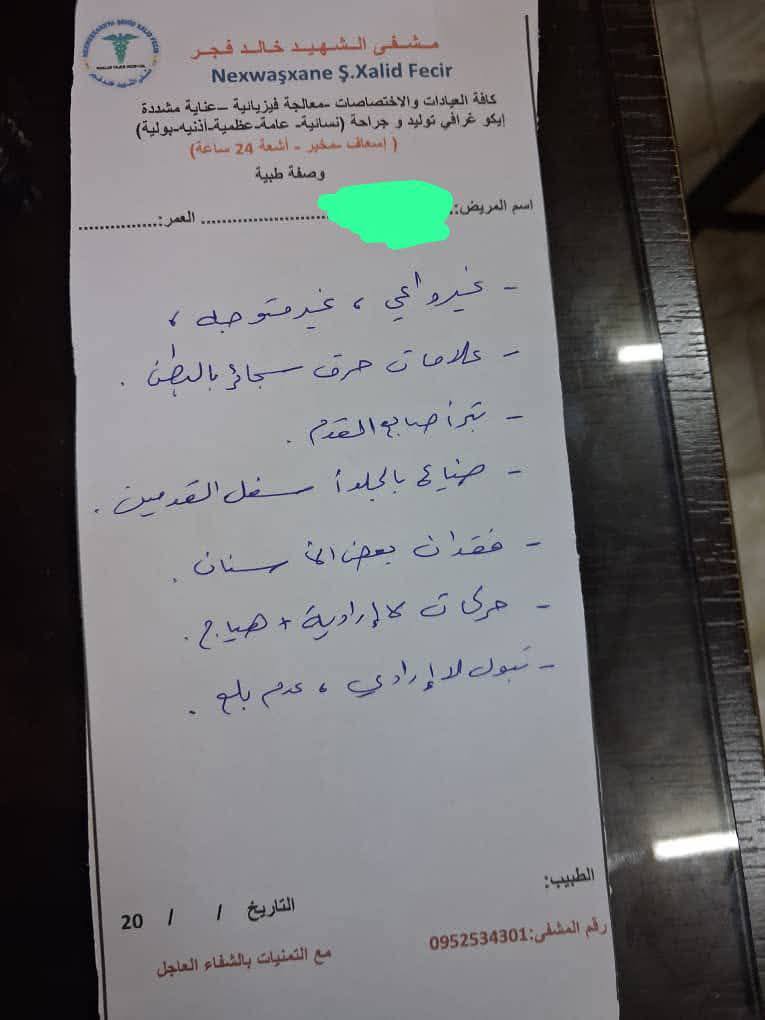 مشفى الشهيد خالد فجر
Nexwaşxane Ş.Xalid Fecir
كافة العيادات والاختصاصات -معالجة فيزيائية –عناية مشددة
إيكو غرافي توليد و جراحة (نسائية- عامة-عظمية-أذنيه-بولية)
( إسعاف -مخبر - أشعة 24 ساعة)
وصفة طبية
اسم المريض:........................ العمر:...............
- غير واعي ، غير متوجه ،
- علامات حرق سجائر بالبطن .
- بتر أصابع القدم .
- ضياع بالجلد أسفل القدمين .
- فقدان بعض الأسنان .
- حركات لا إرادية + هياج .
- تبول لا إرادي ، عدم بلع .
الطبيب:
التاريخ / / 20
رقم المشفى:0952534301
مع التمنيات بالشفاء العاجل